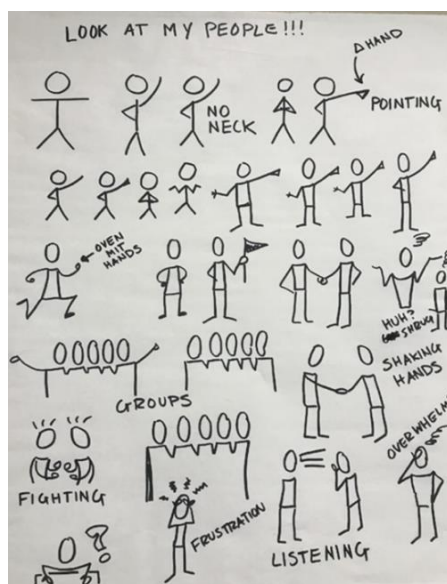 LOOK AT MY PEOPLE!!!
Δ HAND
NO
NECK
POINTING
OVEN
MIT
HANDS
?
HUH?
SHRUG
GROUPS
SHAKING
HANDS
FIGHTING
FRUSTRATION
LISTENING
?